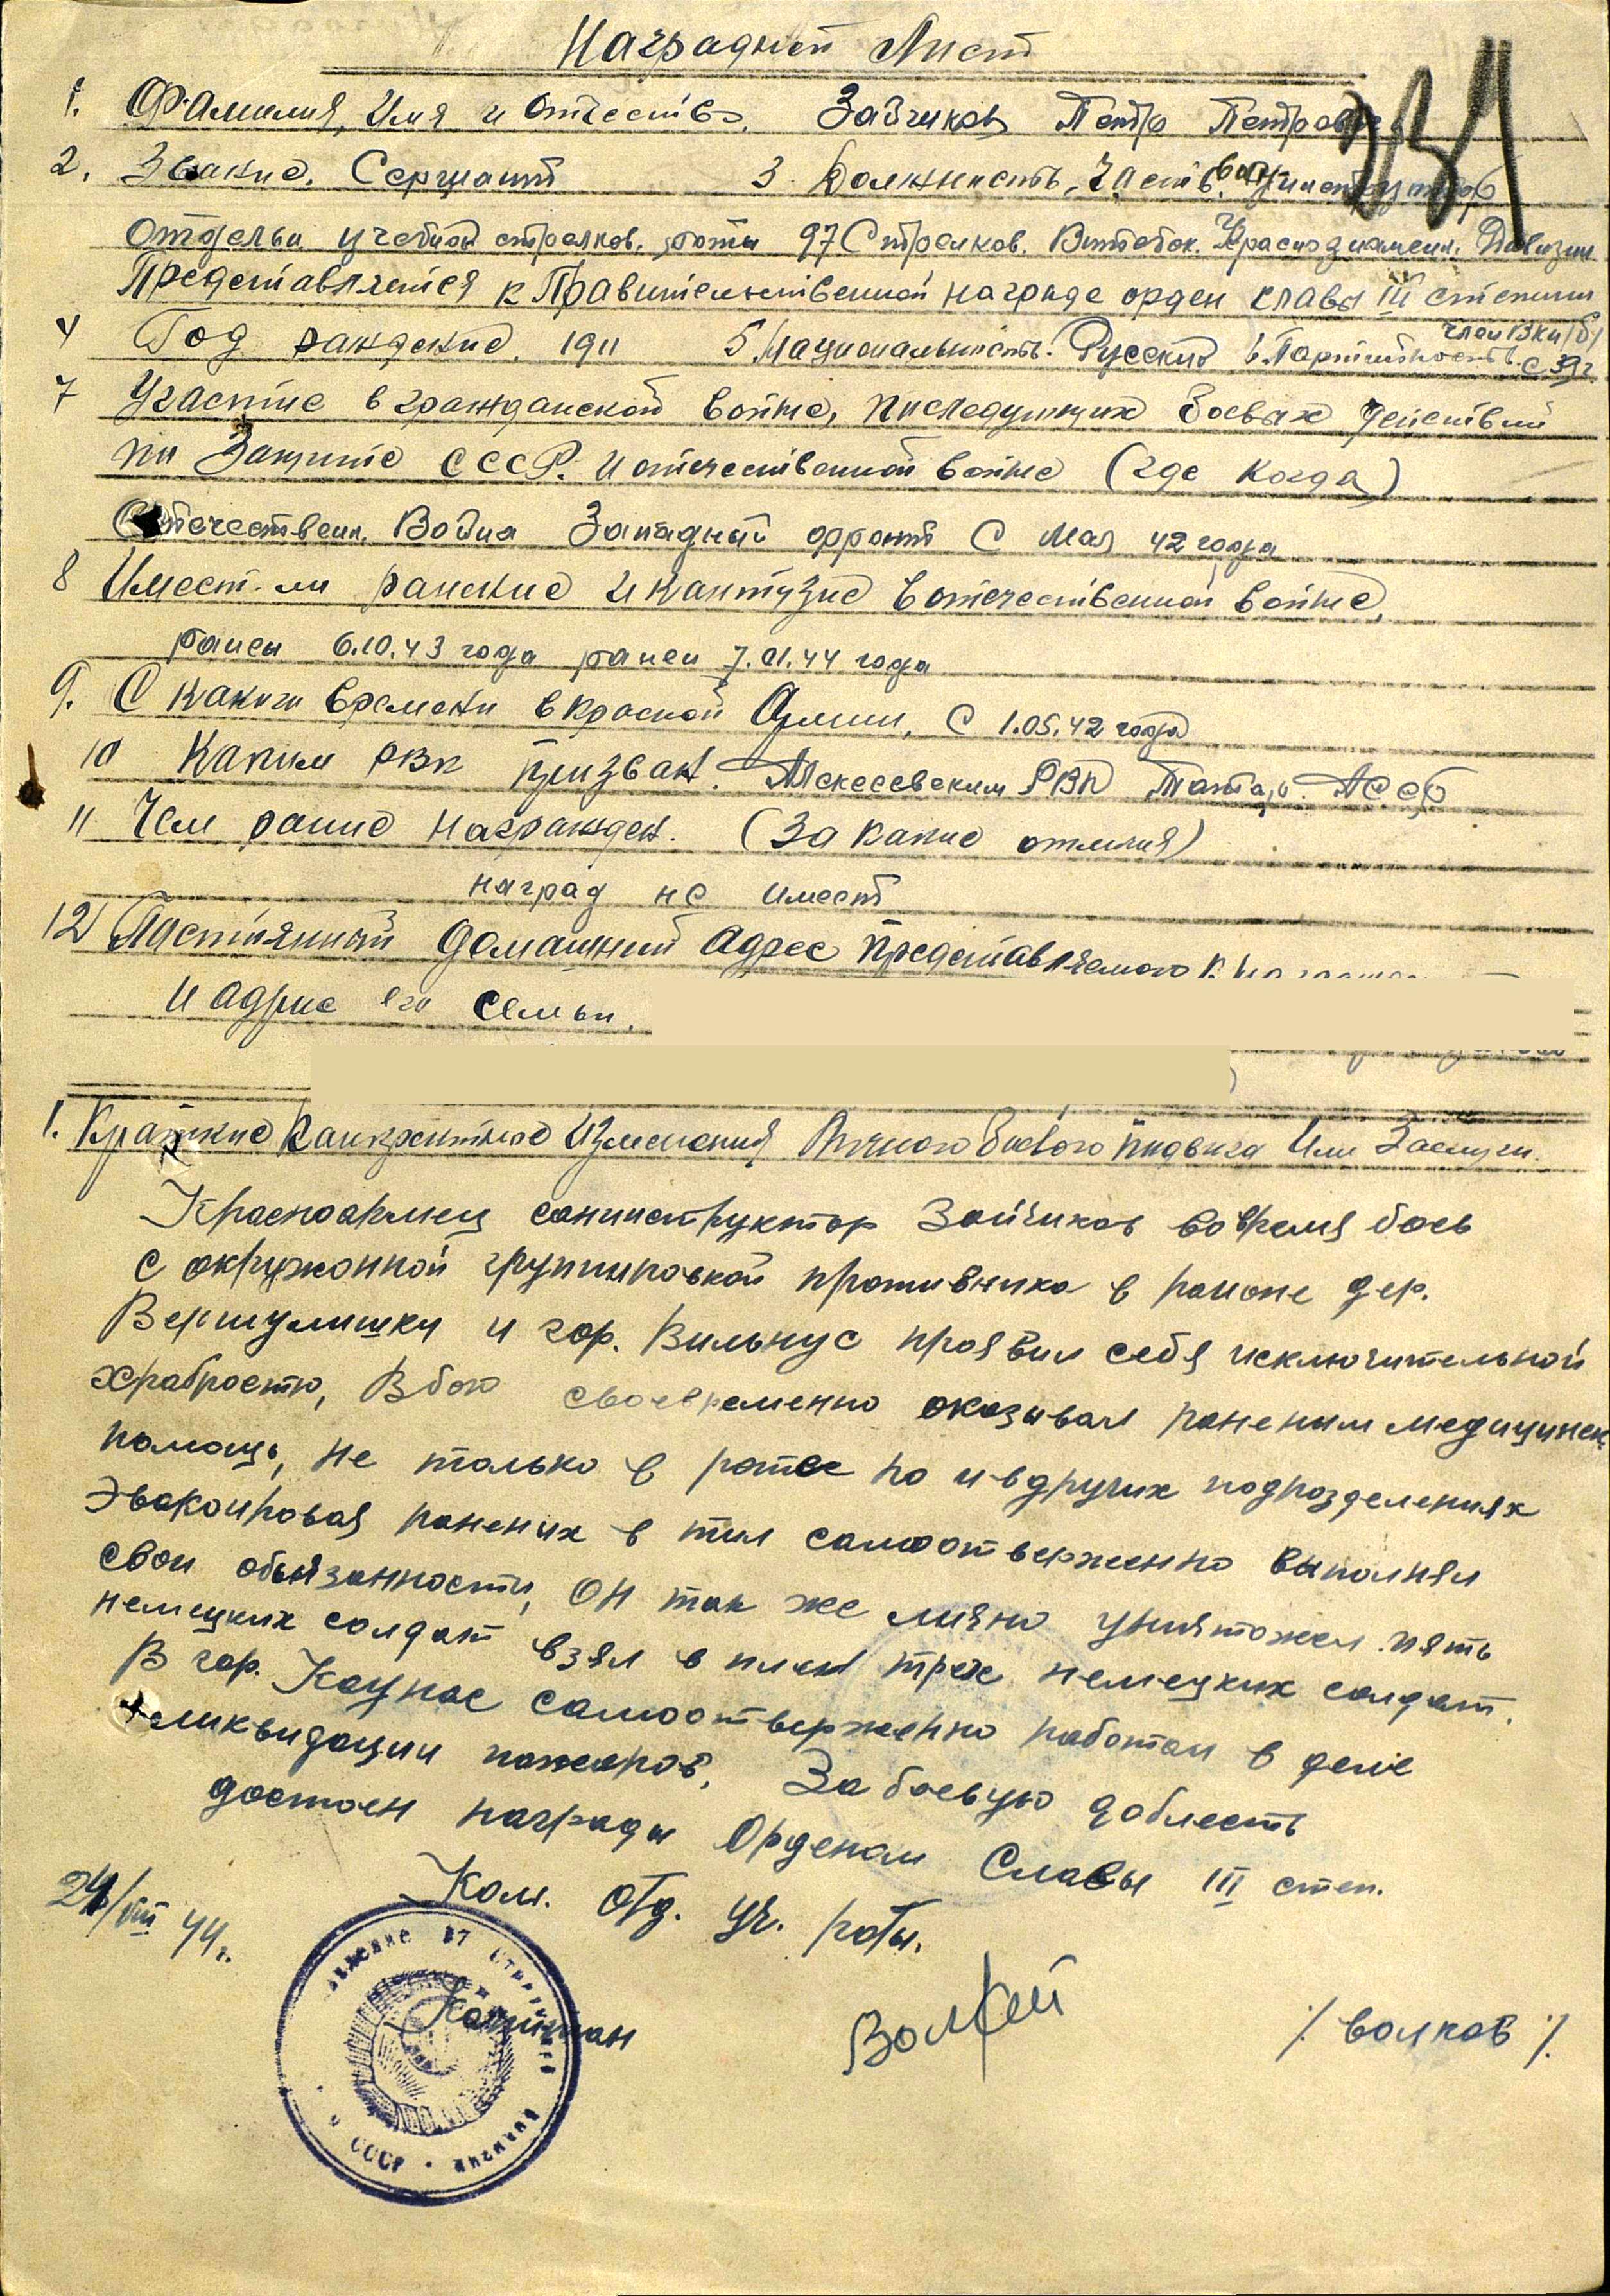 Наградной Лист
1. Фамилия, Имя и Отчество. Зайчиков Петр Петрович
2. Звание. Сержант 3 Должность, Часть. сан.инструктор
Отдельн. учебной стрелков. роты 97 Стрелков. Витебск. Краснознамен. Дивизии
Представляется к Правительственной награде орден славы III степени
4 Год рождение. 1911 5. Национальность. Русский 6. Партийность. член ВКП(б) с 39г
7 Участие в гражданской войне, последующих боевых действий
по Защите СССР. и отечественной войне (где когда)
Отечествен. Война Западный фронт С Мая 42 года
8 Имеет-ли ранение и кантузие в отечественной войне,
ранен 6.10.43 года ранен 7.01.44 года
9. С какого времени в красной Армии, с 1.05.42 года
10 Каким РВК призван. Алексеевским РВК Татар. АССР
11 Чем ранне награжден. (За какие отличия)
наград не имеет
12) Постоянный домашний Адрес представляемого к
и адрис его семьи,
1. Краткие Канкретное Изменения Личного боевого подвига Или Заслуги.
Красноармеец санинструктор Зайчиков во время боев
с окружонной групировкой противника в районе дер.
Вершулишки и гор. Вильнус проявил себя исключительной
храбростю, В бою своевременно оказывал раненым медицинск.
помощь, не только в роте но и в других подразделениях
Эвакоировая ранених в тил самоотверженно выполнял
свои обызанности, Он так же лично уничтожел пять
немецких солдат взял в плен трех немецких солдат.
В гор. Каунас самоотверженно работал в деле
ликвидации пожаров. За боевую доблесть
достоен награды Орденом Славы III степ.
24/VIII 44г. Ком. Отд. уч. роты.
Капитан /Волков/.
97 СТРЕЛКОВОЙ ДИВИЗИИ СССР